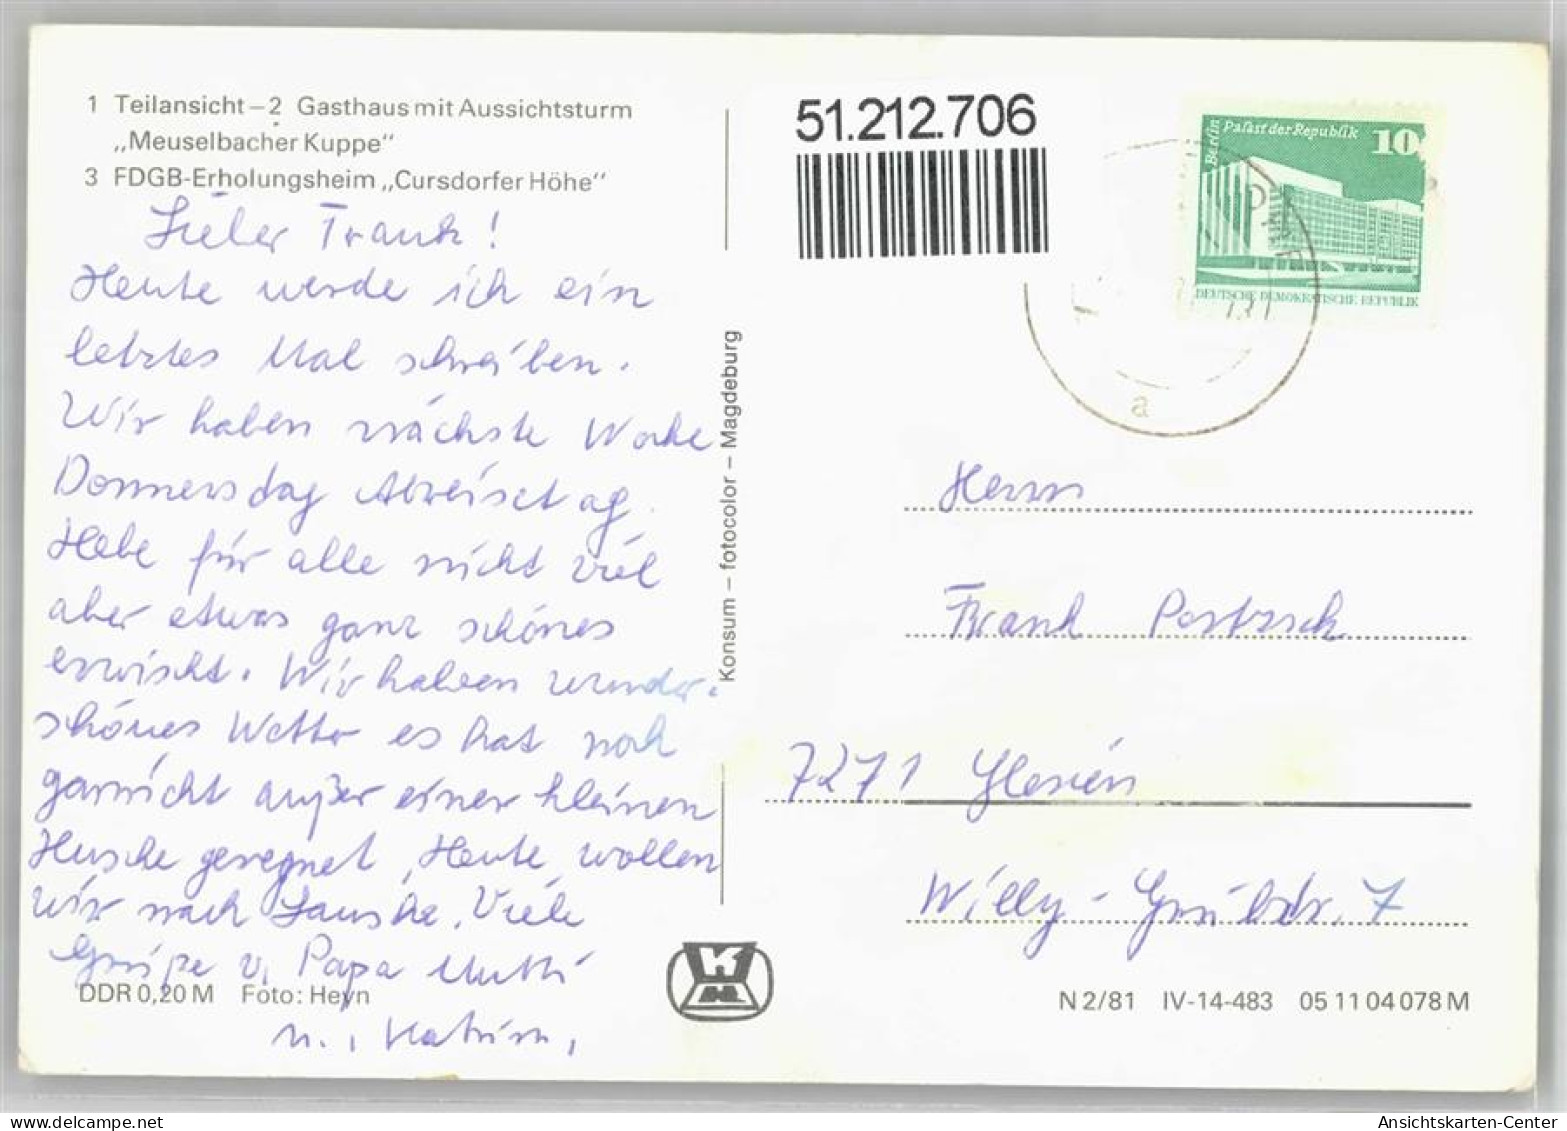 1 Teilansicht – 2 Gasthaus mit Aussichtsturm
„Meuselbacher Kuppe“
3 FDGB-Erholungsheim „Cursdorfer Höhe“
Lieber Frank!
Heute werde ich ein
letztes Mal schreiben.
Wir haben nächste Woche
Donnersdag Abreisetag.
Habe für alle nicht viel
aber etwas ganz schönes
erwischt. Wir haben wunder-
schönes Wetter es hat noch
garnicht außer einer kleinen
Husche geregnet, Heute wollen
wir nach Lauscha. Viele
Grüße v. Papa Mutti
u. Katrin,
DDR 0,20 M Foto: Heyn
Konsum – fotocolor – Magdeburg
51.212.706
Berlin Palast der Republik 10
DEUTSCHE DEMOKRATISCHE REPUBLIK
a
Herrn
Frank
7271
Willy-Grübelstr. 7
N 2/81 IV-14-483 05 11 04 078 M
Ansichtskarten-Center